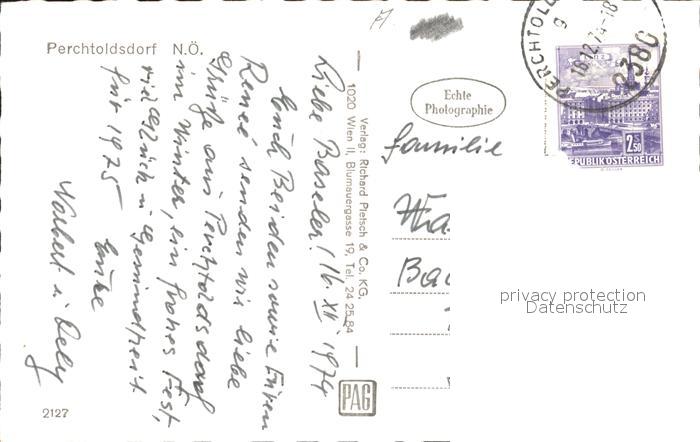 Perchtoldsdorf N.Ö.
Liebe Baseler! 16. XII 1974
Euch Beiden sowie Euren
Reneé senden wir liebe
Grüße aus Perchtoldsdorf
im Winter, ein frohes Fest,
viel Glück u Gesundheit
für 1975
Eure
Norbert u
2127
Verlag: Richard Pietsch & Co. KG.
1020 Wien II, Blumauergasse 19, Tel. 24 25 84
PAG
Echte
Photographie
PERCHTOL
g
18.12.74-18
2380
2.50
REPUBLIK ÖSTERREICH
Familie
privacy protection
Datenschutz